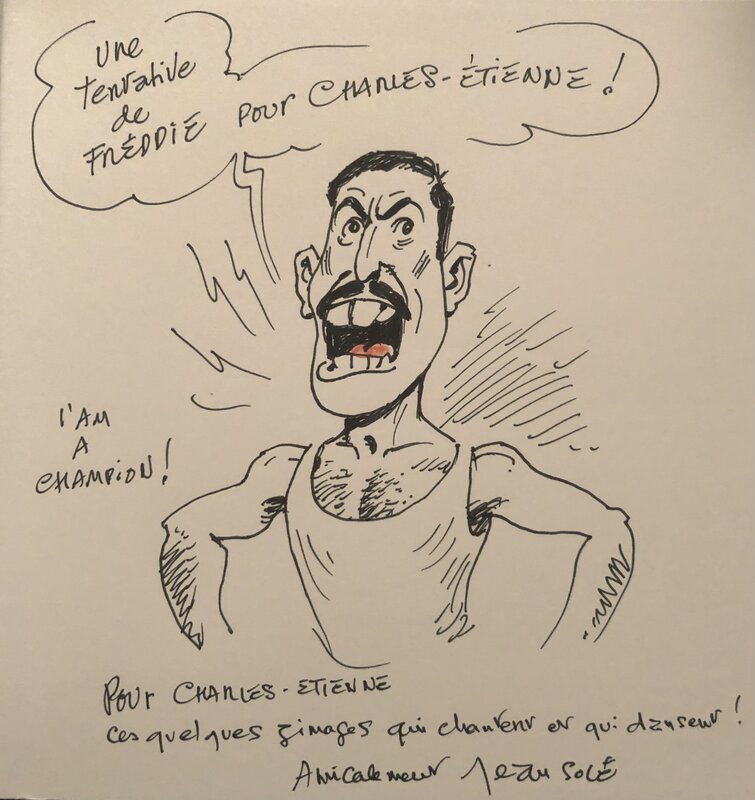 Une
tentative
de
FRÉDDIE pour CHARLES-ÉTIENNE !
I'AM
A
CHAMPION !
Pour CHARLES-ETIENNE
ces quelques zimages qui chantent et qui dansent !
Amicalement Jean SOLÉ